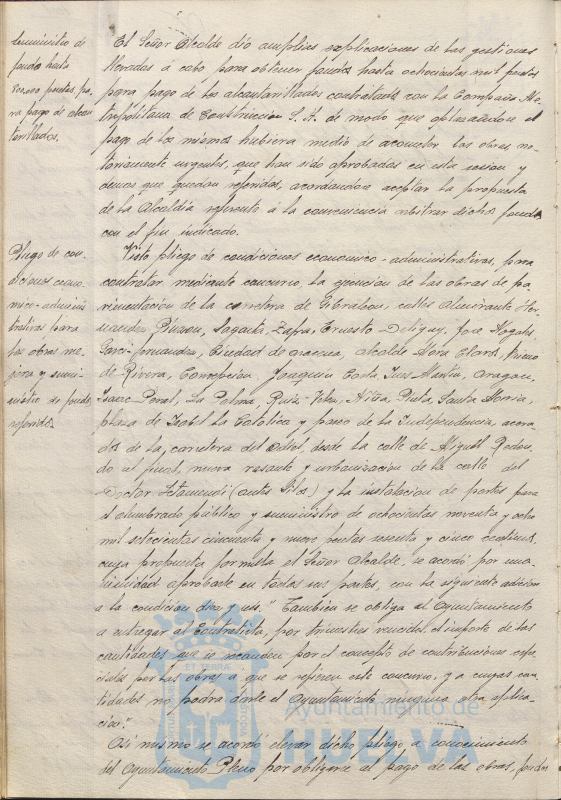 Suministro de
fondos hasta
800.000 pesetas pa-
ra pago de alcan-
tarillados.
El Señor Alcalde dió amplias explicaciones de las gestiones
llevadas á cabo para obtener fondos hasta ochocientas mil pesetas
para pago de los alcantarillados contratados con la Compañia Me-
tropolitana de Construccion S. A. de modo que aplazandose el
pago de los mismos hubiera medio de acometer las obras no-
toriamente urgentes, que han sido aprobadas en esta sesion y
demas que quedan referidas, acordandose aceptar la propuesta
de la Alcaldia referente á la conveniencia arbitrar dichos fondos
con el fin indicado.
Pliego de con-
diciones econo-
mico-adminis-
trativas para
las obras me-
jora y sumi-
nistro de fondos
referidos.
Visto pliego de condiciones economico-administrativas, para
contratar mediante concurso, la ejecucion de las obras de pa-
vimentacion de la carretera de Gibraleon, calles Almirante Her-
nandez Pinzon, Sagasta, Zafra, Ernesto Deligny, José Nogales,
Garci-Fernandez, Ciudad de Aracena, Alcalde Mora Claros, Primo
de Rivera, Concepcion, Joaquin Costa, Luis Martin, Aragon,
Isaac Peral, La Palma, Ruiz-Velez, Niña, Pinta, Santa Maria,
plaza de Isabel la Catolica y paseo de la Independencia, acera-
dos de la carretera del Odiel, desde la calle de Miguel Redon-
do al final, nueva rasante y urbanizacion de la calle del
Doctor Letamendi (antes Silos) y la instalacion de postes para
el alumbrado público y suministro de ochocientas noventa y ocho
mil setecientas cincuenta y nueve pesetas sesenta y cinco centimos,
cuya propuesta formula el Señor Alcalde, se acordó por una-
nimidad aprobarle en todas sus partes, con la siguiente adicion
a la condicion diez y seis: "Tambien se obliga el Ayuntamiento
a entregar al Contratista, por trimestres vencidos el importe de las
cantidades que se recauden por el concepto de contribuciones espe-
ciales por las obras a que se refiere este concurso, y a cuyas can-
tidades no podrá darle el Ayuntamiento ninguna otra aplica-
cion".
Asi mismo se acordó elevar dicho pliego, a conocimiento
del Ayuntamiento Pleno por obligarse al pago de las obras, fondos
Ayuntamiento de
HUELVA